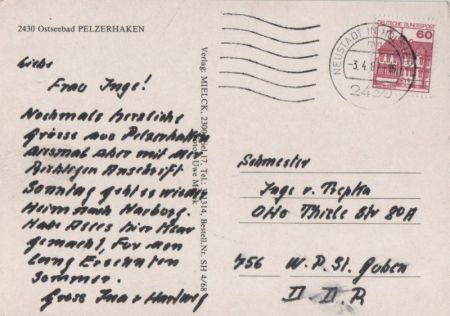 2430 Ostseebad PELZERHAKEN
Liebe
Frau Inge!
Nochmals herzliche
Grösse aus Pelzerhaken
diesmal aber mit der
Richtigen Anschrift
Sonntag geht es wieder
Heim nach Harburg.
Hab Alles hier
gemacht, Für den
lang Ersehnten
Sommer.
Gross Ina u Hartwig
Verlag: MIELCK, 2300 Kiel 17, Tel.: 314, Bestell.Nr. SH 4/68
Uwe Mielck
NEUSTADT IN HOLST
-3.4.8
2430
DEUTSCHE BUNDESPOST
60
Schwester
Inge v. Trepka
Otto Thiele Str 80A
756 W. P. St. Guben
D D R